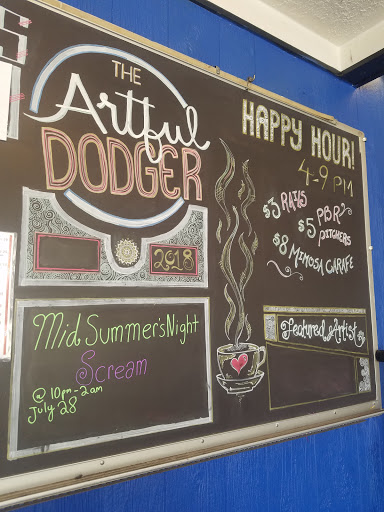 THE
Artful
DODGER
2018
Mid Summer'sNight
Scream
@ 10pm-2am
July 28
HAPPY HOUR!
4-9 PM
$5 PBR
PITCHERS
$8 MIMOSA CARAFE
Featured Artist